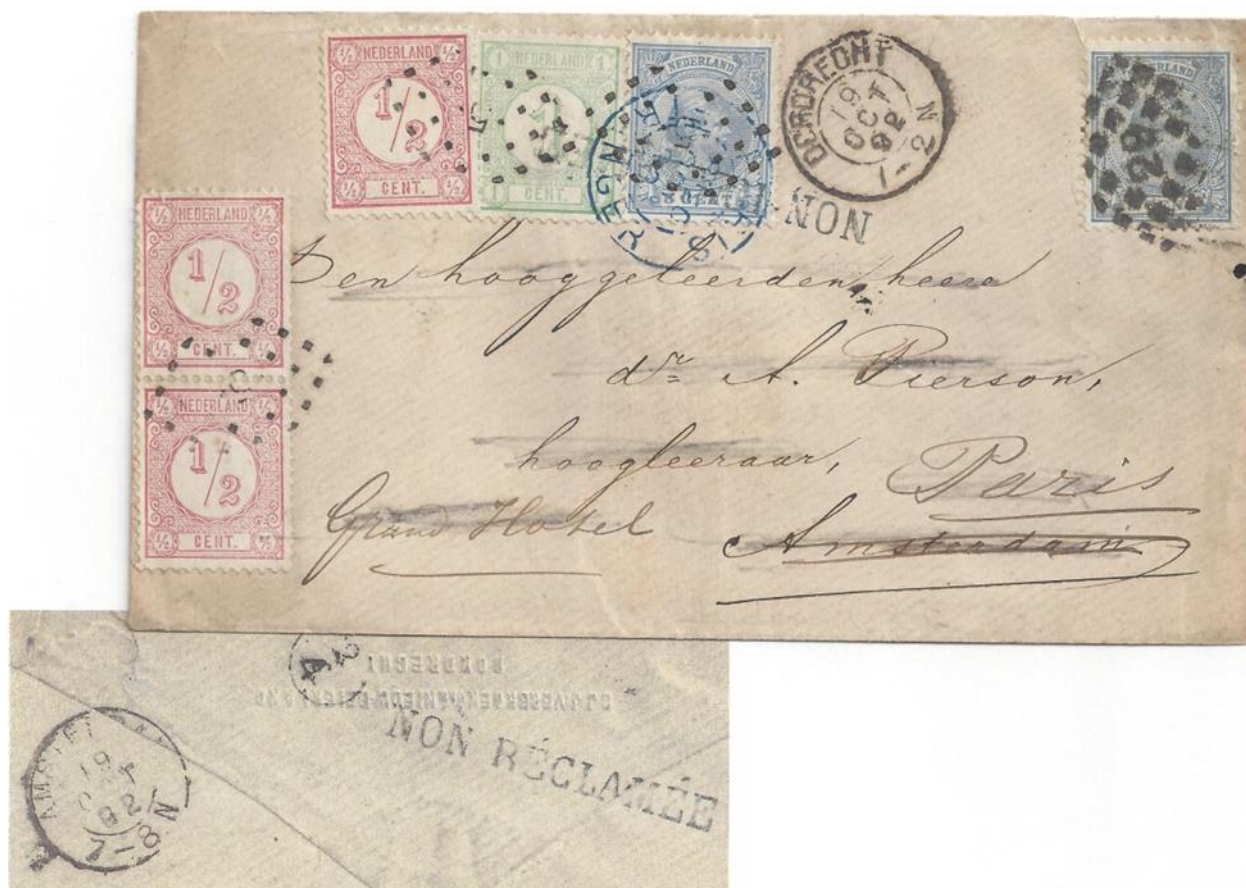 ½ NEDERLAND ½
1/2
½ CENT. ½
1 NEDERLAND 1
1
CENT.
NEDERLAND
CENT
DORDRECHT
19
OCT
92
1-2N
NEDERLAND
29
NON
½ NEDERLAND ½
1/2
½ CENT. ½
½ NEDERLAND ½
1/2
½ CENT. ½
Den hooggeleerden heere
dr A. Pierson,
hoogleeraar,
Paris
Grand Hotel
Amsterdam
DORDRECHT
NON RÉCLAMÉE
19
92
7-8N